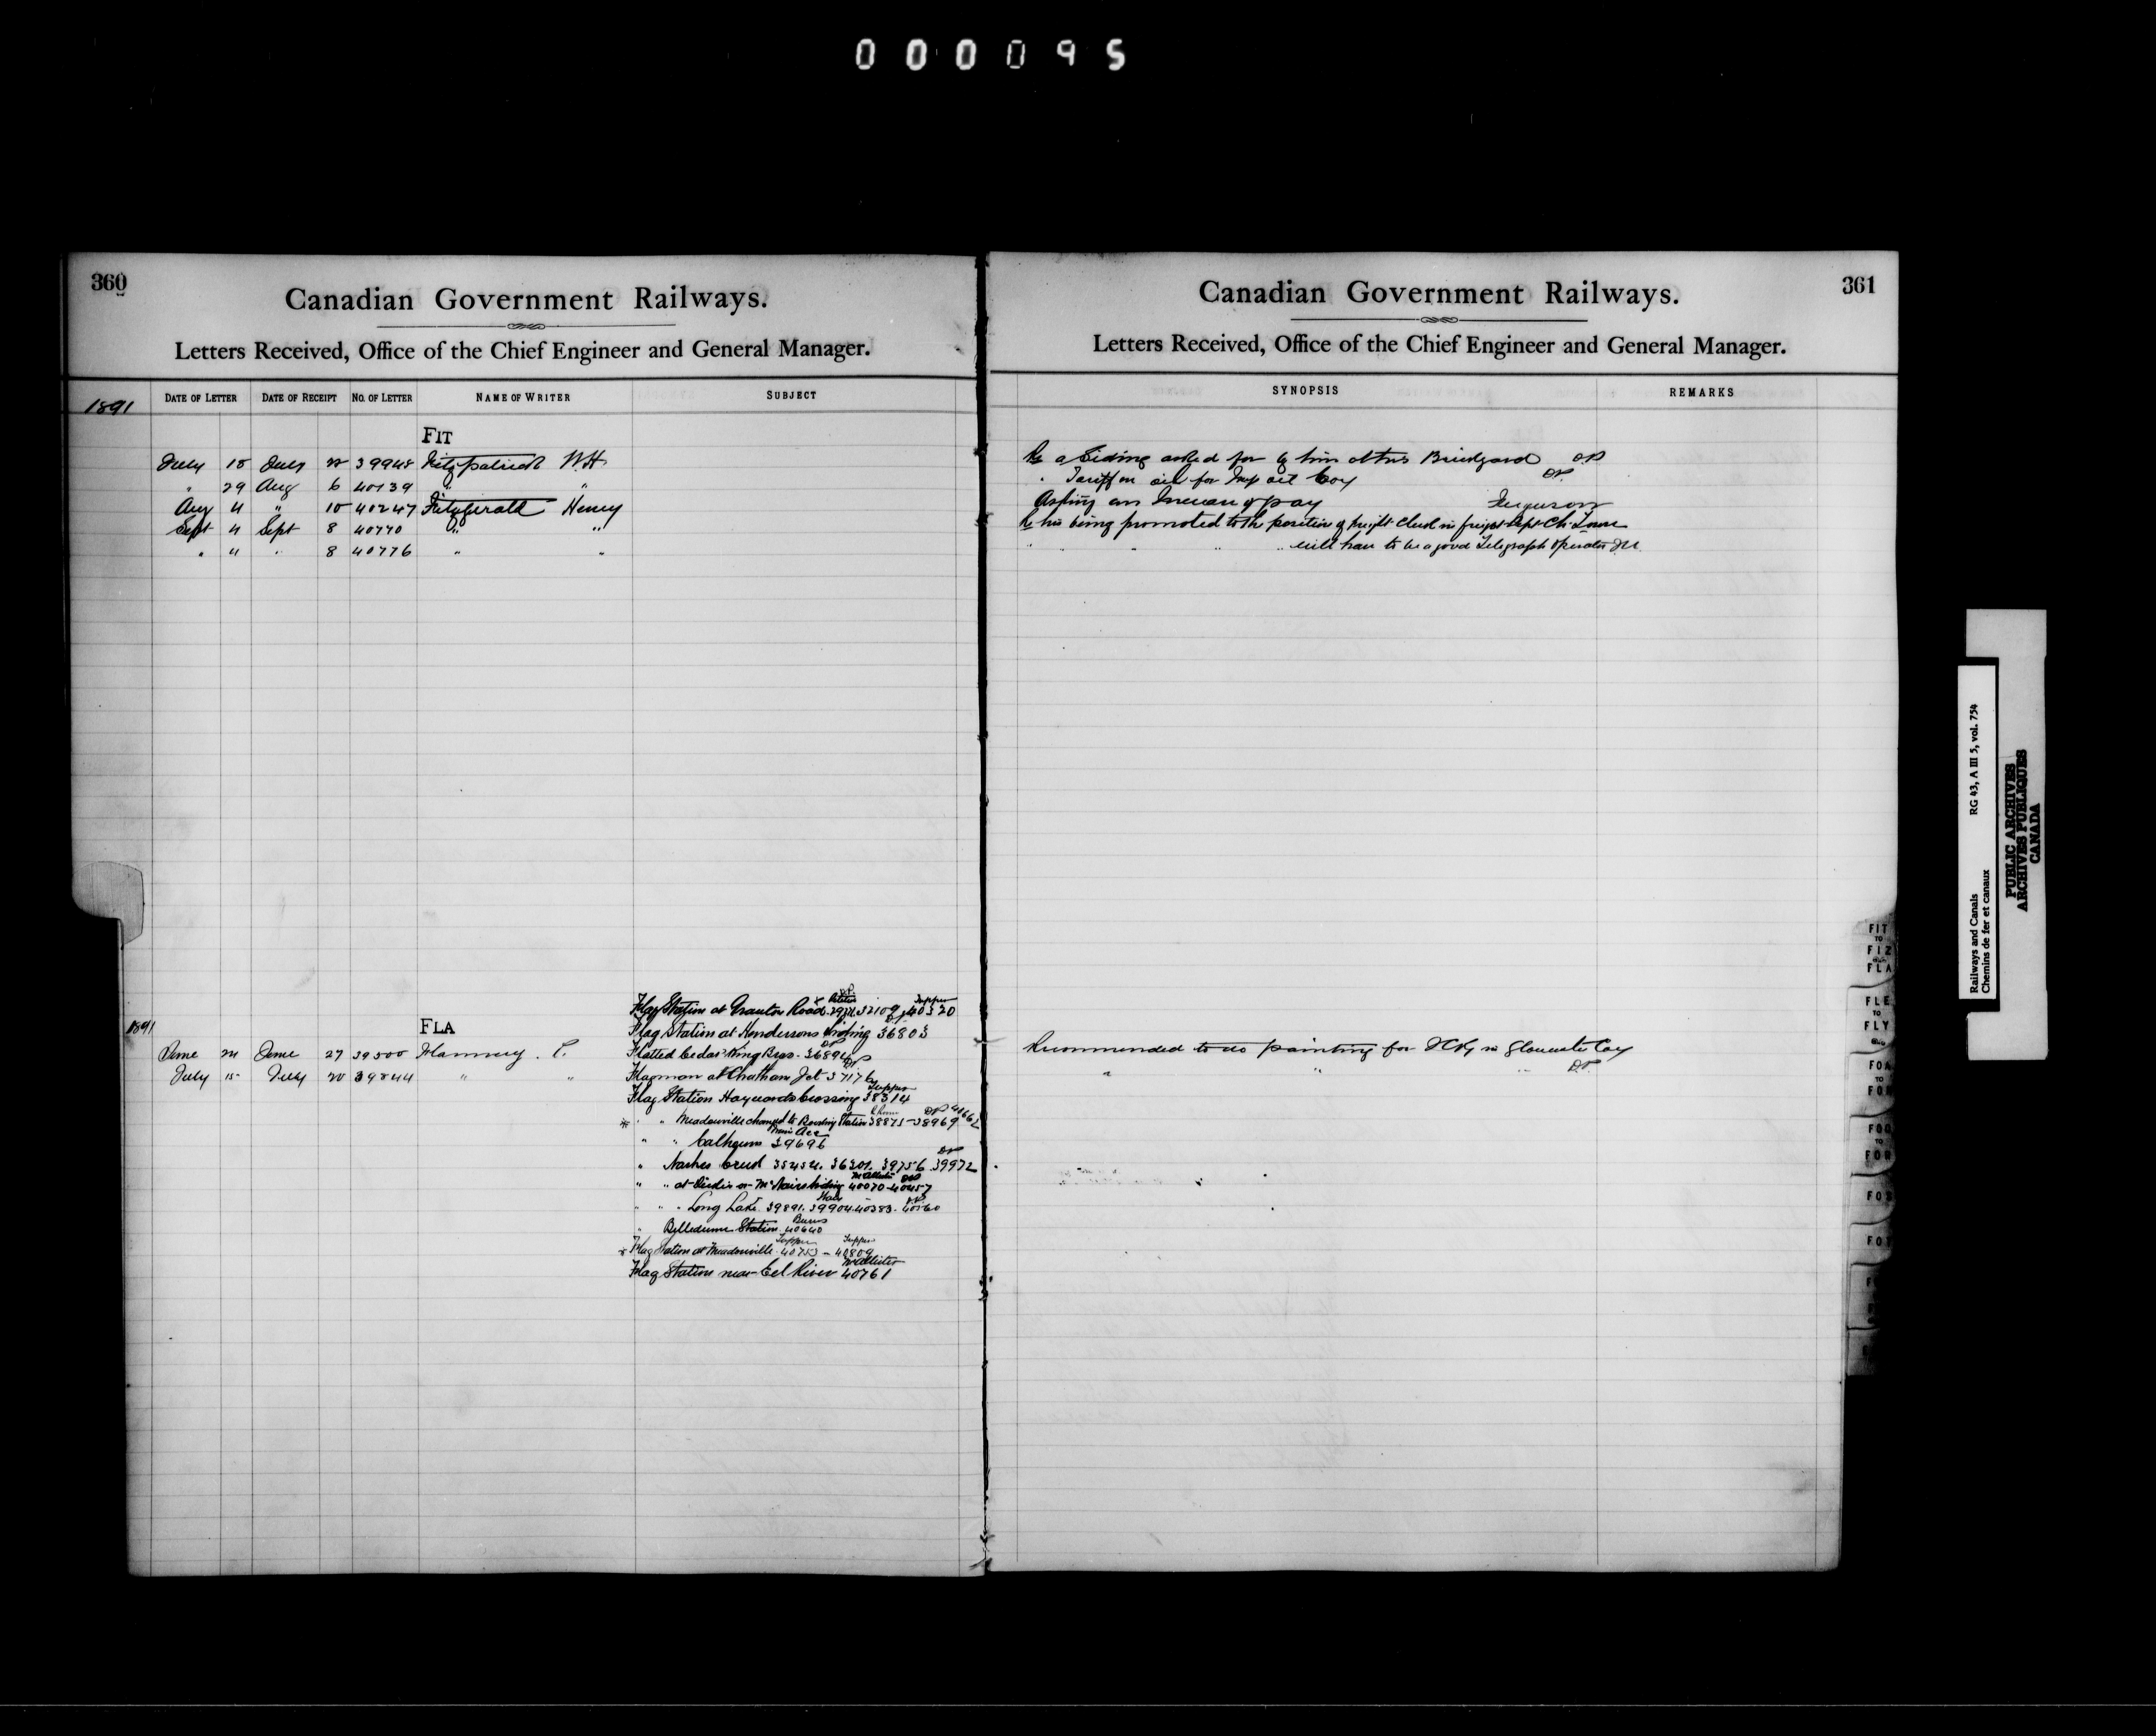 000095
360
Canadian Government Railways.
Letters Received, Office of the Chief Engineer and General Manager.
1891
DATE OF LETTER DATE OF RECEIPT NO. OF LETTER NAME OF WRITER SUBJECT
FIT
July 18 July 22 39948 Fitzpatrick W.H.
" 29 Aug 6 40139 " "
Aug 4 " 10 40247 Fitzgerald Henry
Sept 4 Sept 8 40770 " "
" 4 " 8 40776 " "
Flag Station at Road 32109 40320
1891
FLA
Flag Station at Hendersons 36803
June 24 June 27 39500 Flannery
Flatted Cedar King Bros. 36894
July 15 July 20 39844 " "
Flagman at Chatham Jct 37176
Flag Station Haywards Crossing 38314
" " Meadowville changed to Station 38871-38969
" " Calhouns 39696
" Nashes Creek 35454. 36301. 39756. 39972
" " at or McNairs Siding 40070-40457
" " " Long Lake. 39891. 39904. 40383.
" Belledune Station 40640
* Flag Station at Meadowville 40753 - 40809
Flag Station near Eel River 40761
361
Canadian Government Railways.
Letters Received, Office of the Chief Engineer and General Manager.
SYNOPSIS REMARKS
Re a Siding asked for by him at his Brickyard DP
" Tariff on oil for Imp oil Coy DP
Asking an Increase of pay Ferguson
Re his being promoted to the position of freight Clerk in freight Dept Ch. Town
" " " " " will have to be a good Telegraph Operator
Recommended to do painting for ICRy in Gloucester Coy
" " " DP
FIT TO FIZ
FLA
FLE TO FLY
FOA TO
FOO TO FOR
Railways and Canals RG 43, A III 5, vol. 754
Chemins de fer et canaux
PUBLIC ARCHIVES
ARCHIVES PUBLIQUES
CANADA